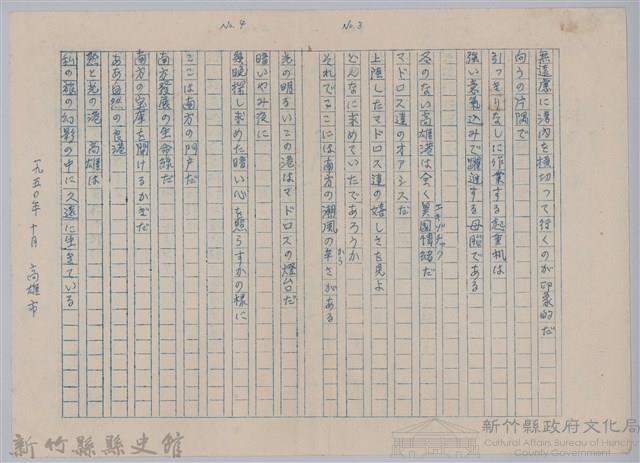 No. 3
無遠慮に湾内を横切って行くのが印象的だ
向うの片隅で
引っきりなしに作業する起重机は
強い意気込みで躍進する母胎である
冬のない高雄港は全く異国情緒だ
エキゾチック
マドロス達のオアシスだ
上陸したマドロス達の嬉しさを見よ
どんなに求めていたであろうか
それでもここには南方の潮風の辛さがある
から
No. 4
光の明るいこの港はマドロスの燈台だ
暗いやみ夜に
幾晩探し求めた暗い心を照らすかの様に
ここは南方の門戸だ
南方發展の生命線だ
南方の宝庫を開けるかぎだ
ああ自然の良港
熱と光の港 高雄は
私の旅の幻影の中に久遠に生きている
一九五〇年 十月 高雄市
新竹縣縣史館
新竹縣政府文化局
Cultural Affairs Bureau of Hsinchu
County Government